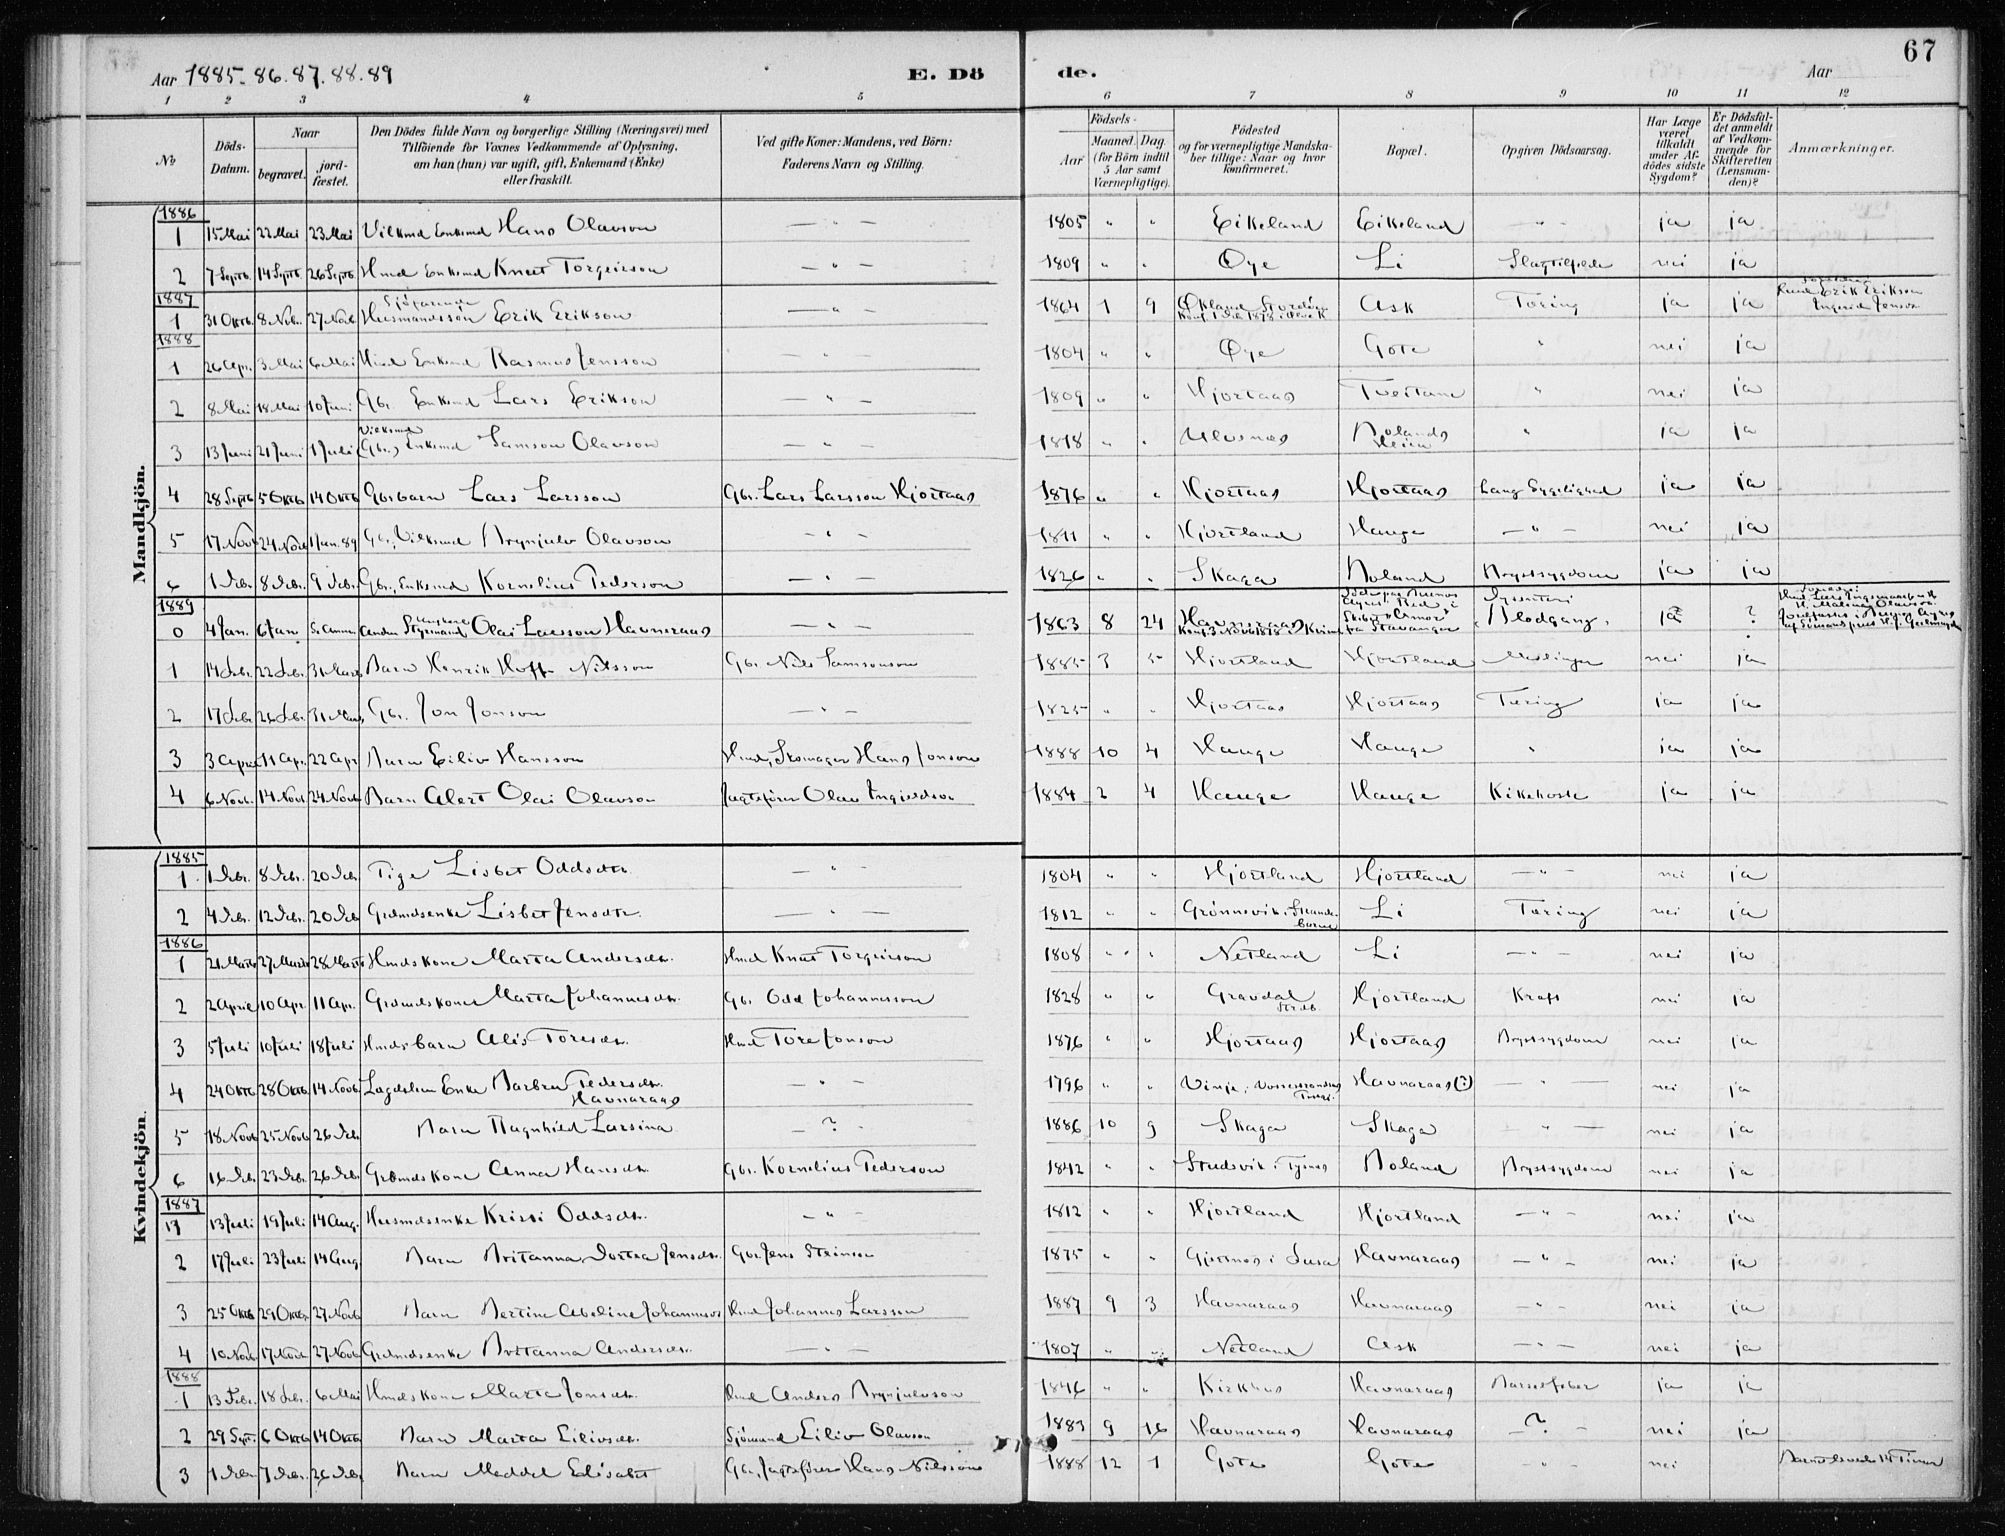 67
Aar 1885. 86. 87. 88. 89
E. Döde.
Aar
1 2 3 4 5 6 7 8 9 10 11 12
No
Döds-Datum.
Naar
begravet.
jordfæstet.
Den Dödes fulde Navn og borgerlige Stilling (Næringsvei) med
Tilföiende for Voxnes Vedkommende af Oplysning,
om han (hun) var ugift, gift, Enkemand (Enke)
eller fraskilt.
Ved gifte Koner: Mandens, ved Börn:
Faderens Navn og Stilling.
Födsels-
Aar
Maaned. Dag.
(for Börn indtil
5 Aar samt
Værnepligtige).
Födested
og for værnepligtige Mandska-
ber tillige: Naar og hvor
konfirmeret.
Bopæl.
Opgiven Dödsaarsag.
Har Læge
været
tilkaldt
under Af-
dödes sidste
Sygdom?
Er Dödsfal-
det anmeldt
af Vedkom-
mende for
Skifteretten
(Lensman-
den)?
Anmærkninger.
Mandkjön.
1886
1 15 Mai 22 Mai 23 Mai Vilkmd Enkemd Hans Olavson — " — 1805 " " Eikeland Eikeland — " — ja ja
2 7 Septb. 14 Septb. 26 Septb. Hmd Enkemd Knut Torgeirson — " — 1809 " " Øye Li Slagtilfælde nei ja
1887
1 31 Oktb. 8 Nvb. 27 Novb. Husmandssøn Erik Erikson — " — 1864 1 9 Økland Ask Tæring ja ja Erik Erikson
1888
1 26 Apr. 3 Mai 6 Mai Hmd Enkemd Rasmus Jensson — " — 1804 " " Øye Gote " nei ja
2 8 Mai 18 Mai 10 Juni Gbr. Enkemd Lars Erikson — " — 1809 " " Hjortaas Tveitane " nei ja
3 13 Juni 21 Juni 1 Juli Vilkmd (Gbr.) Enkemd Samson Olavson — " — 1818 " " Ulvsnes " ja ja
4 28 Septb 5 Oktb 14 Oktb Gbrbarn Lars Larsson Gbr. Lars Larsson Hjortaas 1876 " " Hjortaas Hjortaas Lang Sygelighed ja ja
5 17 Novb 24 Novb 1 Jan. 89 Gbr, Vilkmd Brynjulv Olavson — " — 1811 " " Hjortland Hauge — " — nei ja
6 1 Debr. 8 Debr. 9 Debr. Gbr, Enkemd Kornelius Pederson — " — 1826 " " Skaga Boland Brystsygdom ja ja
1889
0 4 Jan. 6 Jan Styrmand Olai Larsson Havneraas — " — 1863 8 24 Havneraas Dysenteri Blodgang. ja ?
1 14 Febr. 22 Febr. 31 Marts Barn Henrik Hoff Nilsson Gbr Nils Samsonson 1885 3 5 Hjortland Hjortland Meslinger nei ja
2 17 Febr 26 Febr. 31 Marts Gbr. Jon Jonson — " — 1825 " " Hjortaas Hjortaas Tæring ja ja
3 3 April 11 Apr. 22 Apr Barn Eiliv Hansson Hmd, Skomager Hans Jonson 1888 10 4 Hauge Hauge " ja ja
4 6 Novb. 14 Novb. 24 Novb Barn Albert Olai Olavson Jagtefører Olav Ingjeldson 1884 2 4 Hauge Hauge Kikehoste ja ja
Kvindekjön.
1885
1 1 Febr. 8 Febr. 20 Febr Pige Lisbet Oddsdtr. — " — 1804 " " Hjortland Hjortland — " — nei ja
2 4 Febr. 12 Febr. 20 Febr Grdmdsenke Lisbet Jensdtr. — " — 1812 " " Grønnsvik, Strande- barm Li Tæring nei ja
1886
1 21 Marts 27 Marts 28 Marts Hmds kone Marta Andersdtr. Hmd Knut Torgeirson 1808 " " Netland Li — " — nei ja
2 2 April 10 Apr. 11 Apr. Grdmdskone Marta Johannesdtr. Gbr Odd Johannesson 1828 " " Gravdal Strdb. Hjortland Kræft nei ja
3 5 Juli 10 Juli 18 Juli Hmdsbarn Alis Toresdtr. Hmd Tore Jonson 1876 " " Hjortaas Hjortaas Brystsygdom nei ja
4 24 Oktb 28 Oktb 14 Novb. Enke Barbra Pedersdtr. Havnaraas — " — 1796 " " Vinje, Vossestranden Havnaraas (?) — " — nei ja
5 18 Novb 25 Novb 26 Debr Barn Ragnhild Larsina — ? — 1886 10 9 Skaga Skaga — " — nei ja
6 16 Debr 23 Debr. 26 Debr Grdmdskone Anna Hansdtr. Gbr. Kornelius Pederson 1842 " " Studsvik i Tysnes Boland Brystsygdom nei ja
1887
1 13 Juli 19 Juli 14 Aug. Husmdsenke Kristi Oddsdtr. — " — 1812 " " Hjortland Hjortland — " — nei ja
2 17 Juli 23 Juli 14 Aug. Barn Britanna Dortea Jensdtr. Gbr Jens Steinson 1875 " " Gjertnes i Fusa Havnaraas — " — nei ja
3 25 Oktb 29 Oktb. 27 Novb Barn Bertine Abeline Johannesdtr Hmd Johannes Larsson 1887 9 3 Havnaraas Havnaraas — " — nei ja
4 10 Novb 17 Novb 27 Novb Grdmdsenke Britanna Andersdtr. — " — 1807 " " Netland Ask — " — nei ja
1888
1 13 Febr. 18 Febr. 6 Mai Hmds kone Marta Jonsdtr. Hmd Anders Brynjulvson 1846 " " Kirkhus Havnaraas Barselfeber ja ja
2 29 Sept. 6 Oktb 14 Oktb. Barn Marta Eilivsdtr. Sjömand Eiliv Olavson 1883 9 16 Havnaraas Havnaraas — ? — nei ja
3 1 Debr 7 Debr. 26 Debr Barn Meddel Elisabet Gbr, Jagtefører Hans Nilsson 1888 12 1 Gote Gote — " — nei Barnet levede 14 Timer